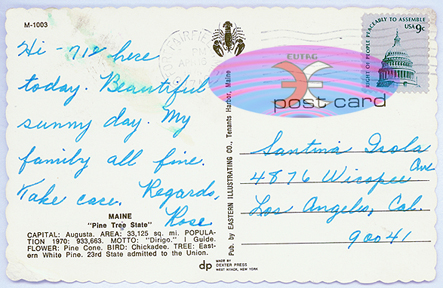 M-1003
Hi - 71° here
today. Beautiful
sunny day. My
family all fine.
Take care. Regards,
Rose
MAINE
"Pine Tree State"
CAPITAL: Augusta. AREA: 33,125 sq. mi. POPULA-
TION 1970: 933,663. MOTTO: "Dirigo." I Guide.
FLOWER: Pine Cone. BIRD: Chickadee. TREE: East-
ern White Pine. 23rd State admitted to the Union.
Pub. by EASTERN ILLUSTRATING CO., Tenants Harbor, Maine
dp
MADE BY
DEXTER PRESS
WEST NYACK, NEW YORK
post card
RIGHT OF PEOPLE PEACEABLY TO ASSEMBLE
USA 9c
Santina Isola
4876 Wicopee
Ave
Los Angeles, Cal.
90041